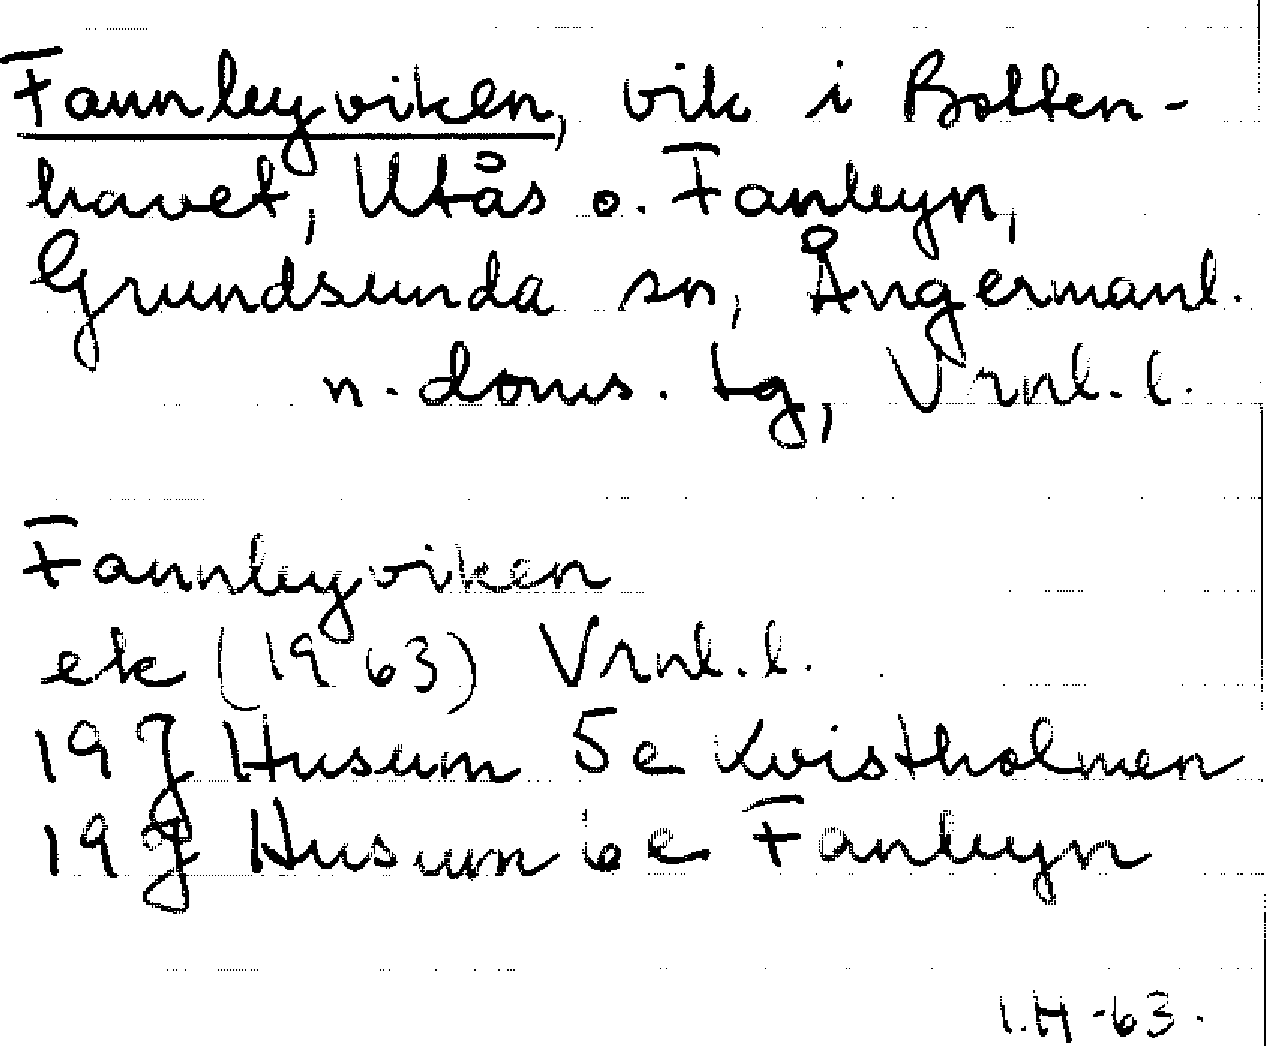 Fannbyviken, vik i Botten-
havet, Utås o. Fanbyn,
Grundsunda sn, Ångermanl.
n. doms. tg, Vrnl. l.
Fannbyviken
ek (1963) Vrnl. l.
19J Husum 5e Kvistholmen
19J Husum 6e Fanbyn
I.H -63.